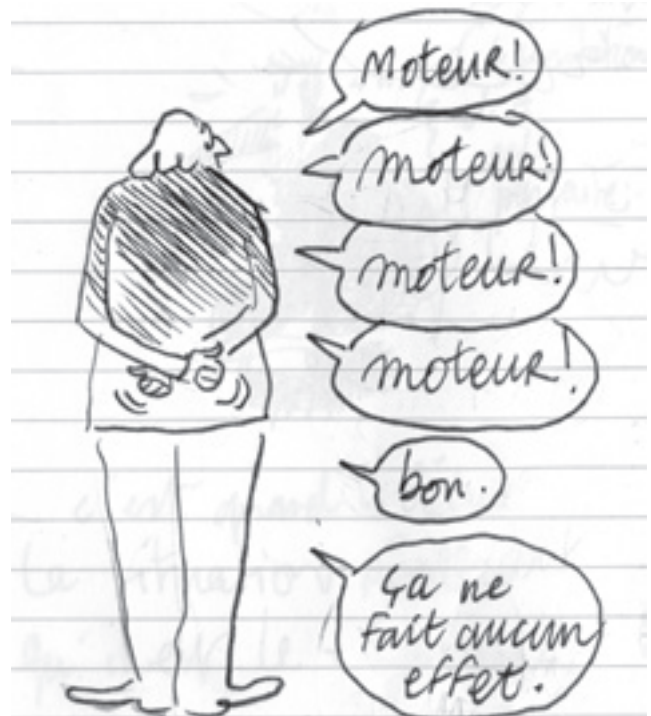 Moteur!
moteur!
moteur!
moteur!
bon.
ça ne
fait aucun
effet.